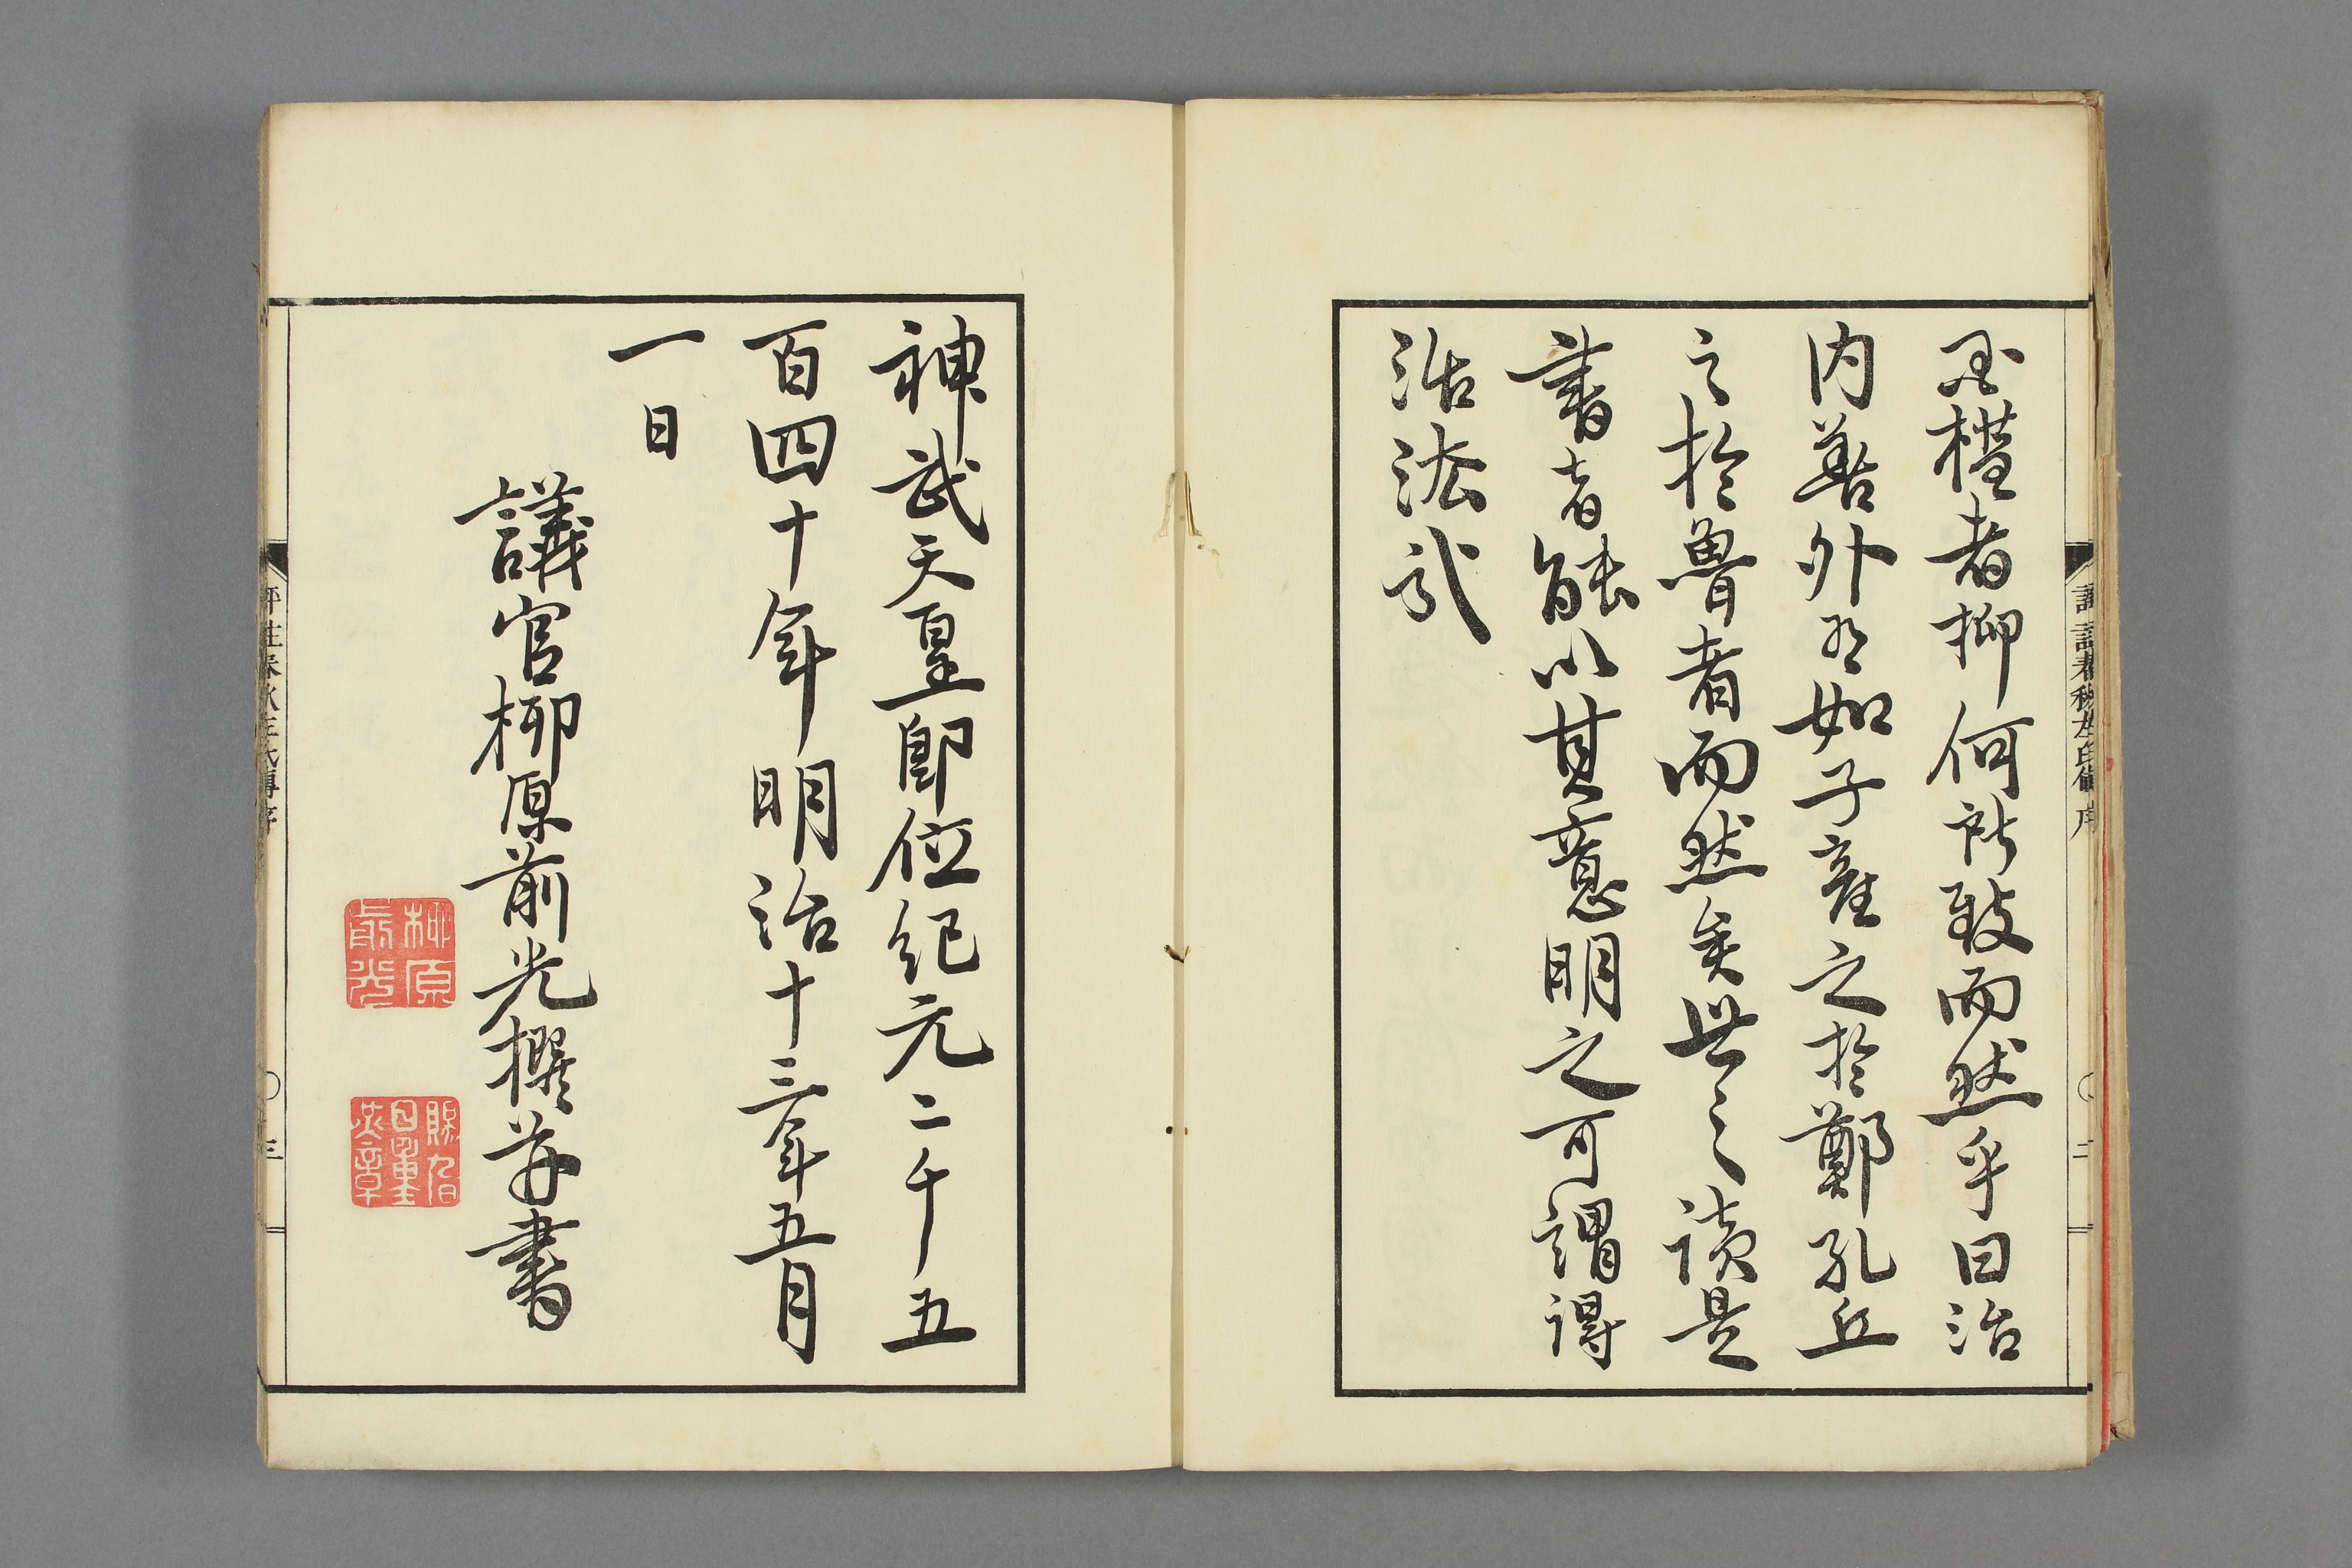 評註春秋左氏傳序 〇 二
国權者抑何所致而然乎曰治
内善外有如子産之於鄭孔丘
之於魯者而然矣世之讀是
書者能以其意明之可謂得
活法哉
神武天皇即位紀元二千五
百四十年明治十三年五月
一日
議官柳原前光撰并書
柳原前光
賜旭日重光章
評註春秋左氏傳序 〇 三